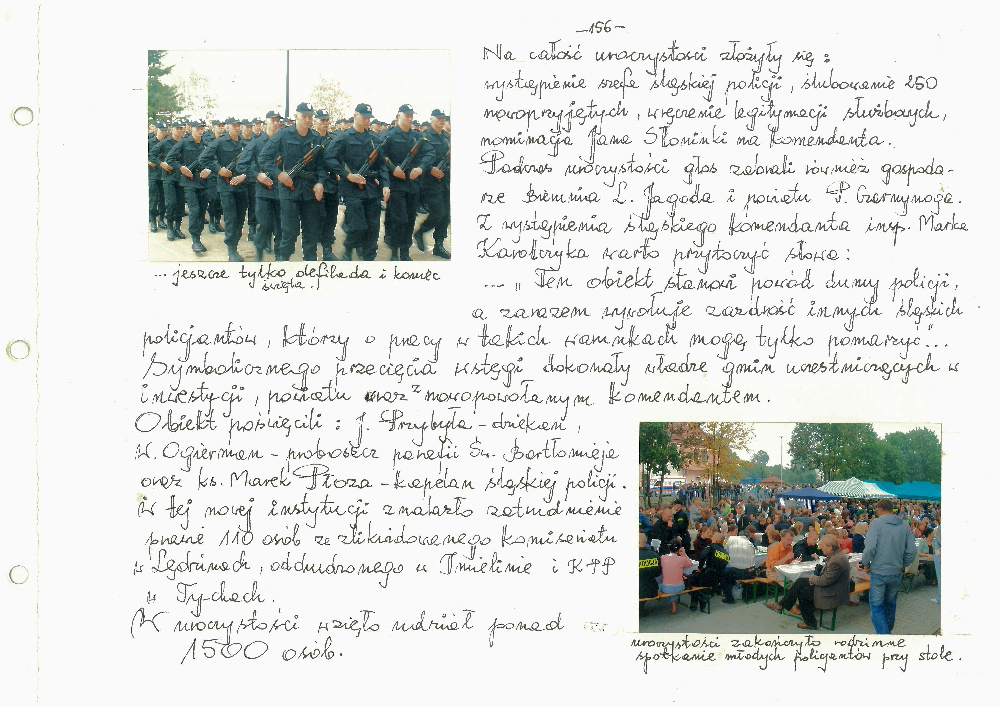 -156-
Na całość uroczystości złożyły się:
wystąpienie szefa śląskiej policji, ślubowanie 250
nowoprzyjętych, wręczenie legitymacji służbowych,
nominacja Jana Słoninki na Komendanta.
Podczas uroczystości głos zabrali również gospoda-
rze Bierunia L. Jagoda i powiatu P. Czarnynoga.
Z wystąpienia śląskiego Komendanta insp. Marka
Karolczyka warto przytoczyć słowa:
... „Ten obiekt stanowi powód dumy policji,
a zarazem wywołuje zazdrość innych śląskich
policjantów, którzy o pracy w takich warunkach mogą tylko pomarzyć"...
Symbolicznego przecięcia wstęgi dokonały władze gmin uczestniczących w
inwestycji, powiatu wraz z nowopowołanym Komendantem.
Obiekt poświęcili: J. Przybyła - dziekan,
W. Ogierman - proboszcz parafii Św. Bartłomieja
oraz ks. Marek Płoza - Kapelan śląskiej policji.
W tej nowej instytucji znalazło zatrudnienie
prawie 110 osób ze zlikwidowanego Komisariatu
w Lędzinach, oddwożonego w Imielinie i KPP
w Tychach.
W uroczystości wzięło udział ponad
1500 osób.
... jeszcze tylko defilada i koniec
święta!
uroczystości zakończyło rodzinne
spotkanie młodych policjantów przy stole.